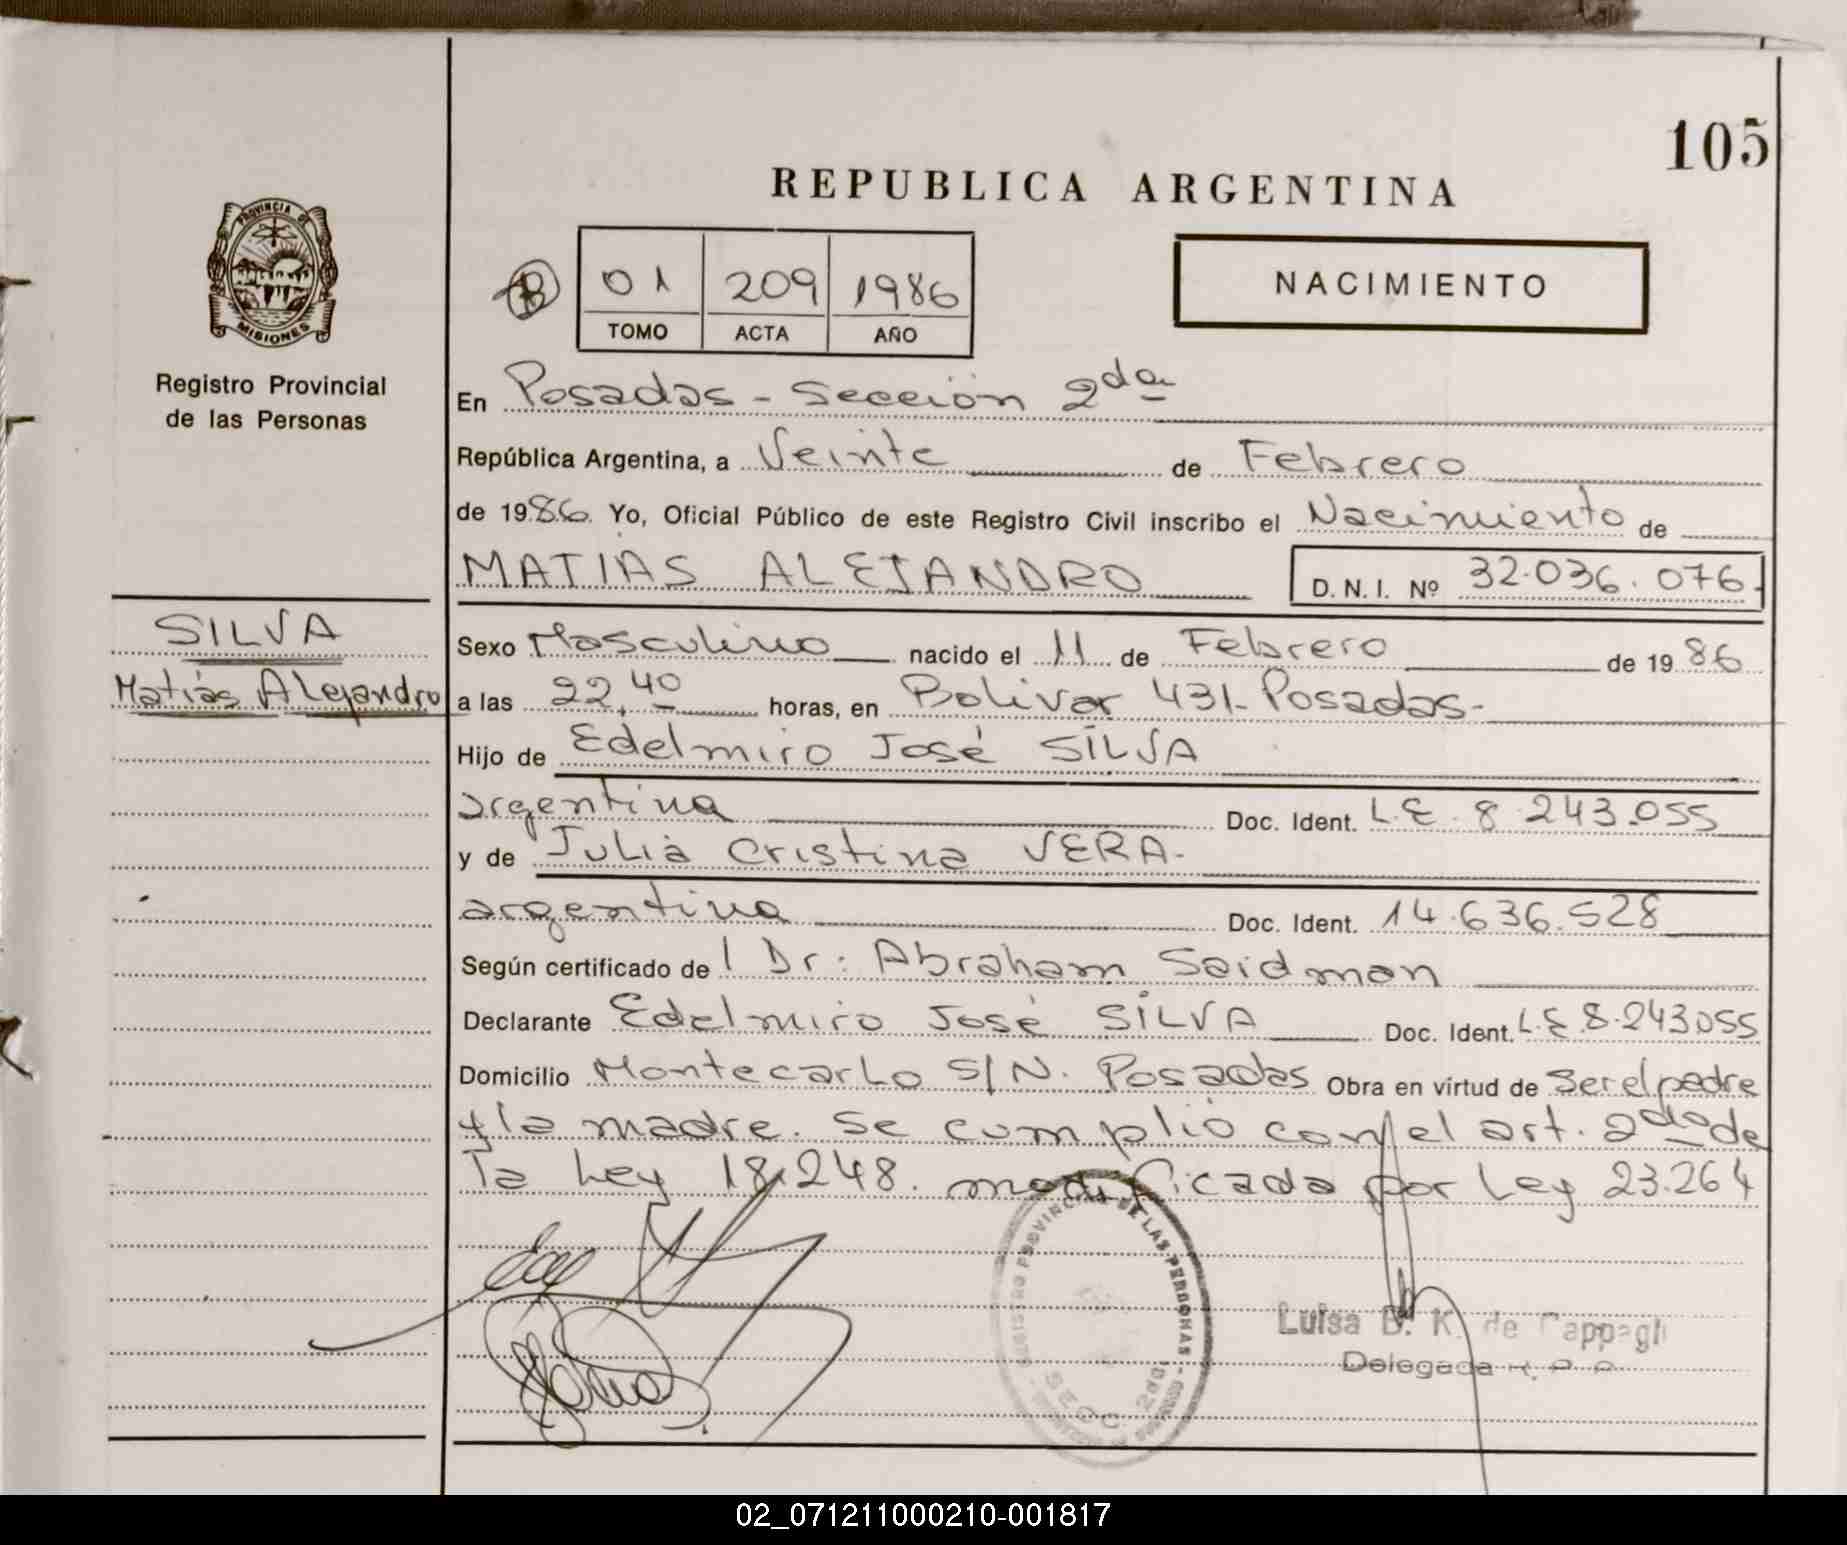 105
REPUBLICA ARGENTINA
PROVINCIA DE
MISIONES
Registro Provincial
de las Personas
B
01 209 1986
TOMO ACTA AÑO
NACIMIENTO
En Posadas - Sección 2da
República Argentina, a Veinte de Febrero
de 1986. Yo, Oficial Público de este Registro Civil inscribo el Nacimiento de
MATIAS ALEJANDRO D.N.I. Nº 32.036.076.
SILVA
Matías Alejandro
Sexo Masculino nacido el 11 de Febrero de 1986
a las 22,40 horas, en Bolivar 431- Posadas-
Hijo de Edelmiro José SILVA
argentina Doc. Ident. L.E. 8.243.055
y de Julia Cristina VERA-
argentina Doc. Ident. 14.636.528
Según certificado de l Dr: Abraham Saidman
Declarante Edelmiro José SILVA Doc. Ident. L.E 8.243.055
Domicilio Montecarlo S/N. Posadas Obra en virtud de ser el padre
y la madre. Se cumplió con el art. 2do de
la Ley 18.248. modificada por Ley 23.264
REGISTRO PROVINCIAL DE LAS PERSONAS
SECC. 2da
Luisa B. K. de
Delegada
02_071211000210-001817